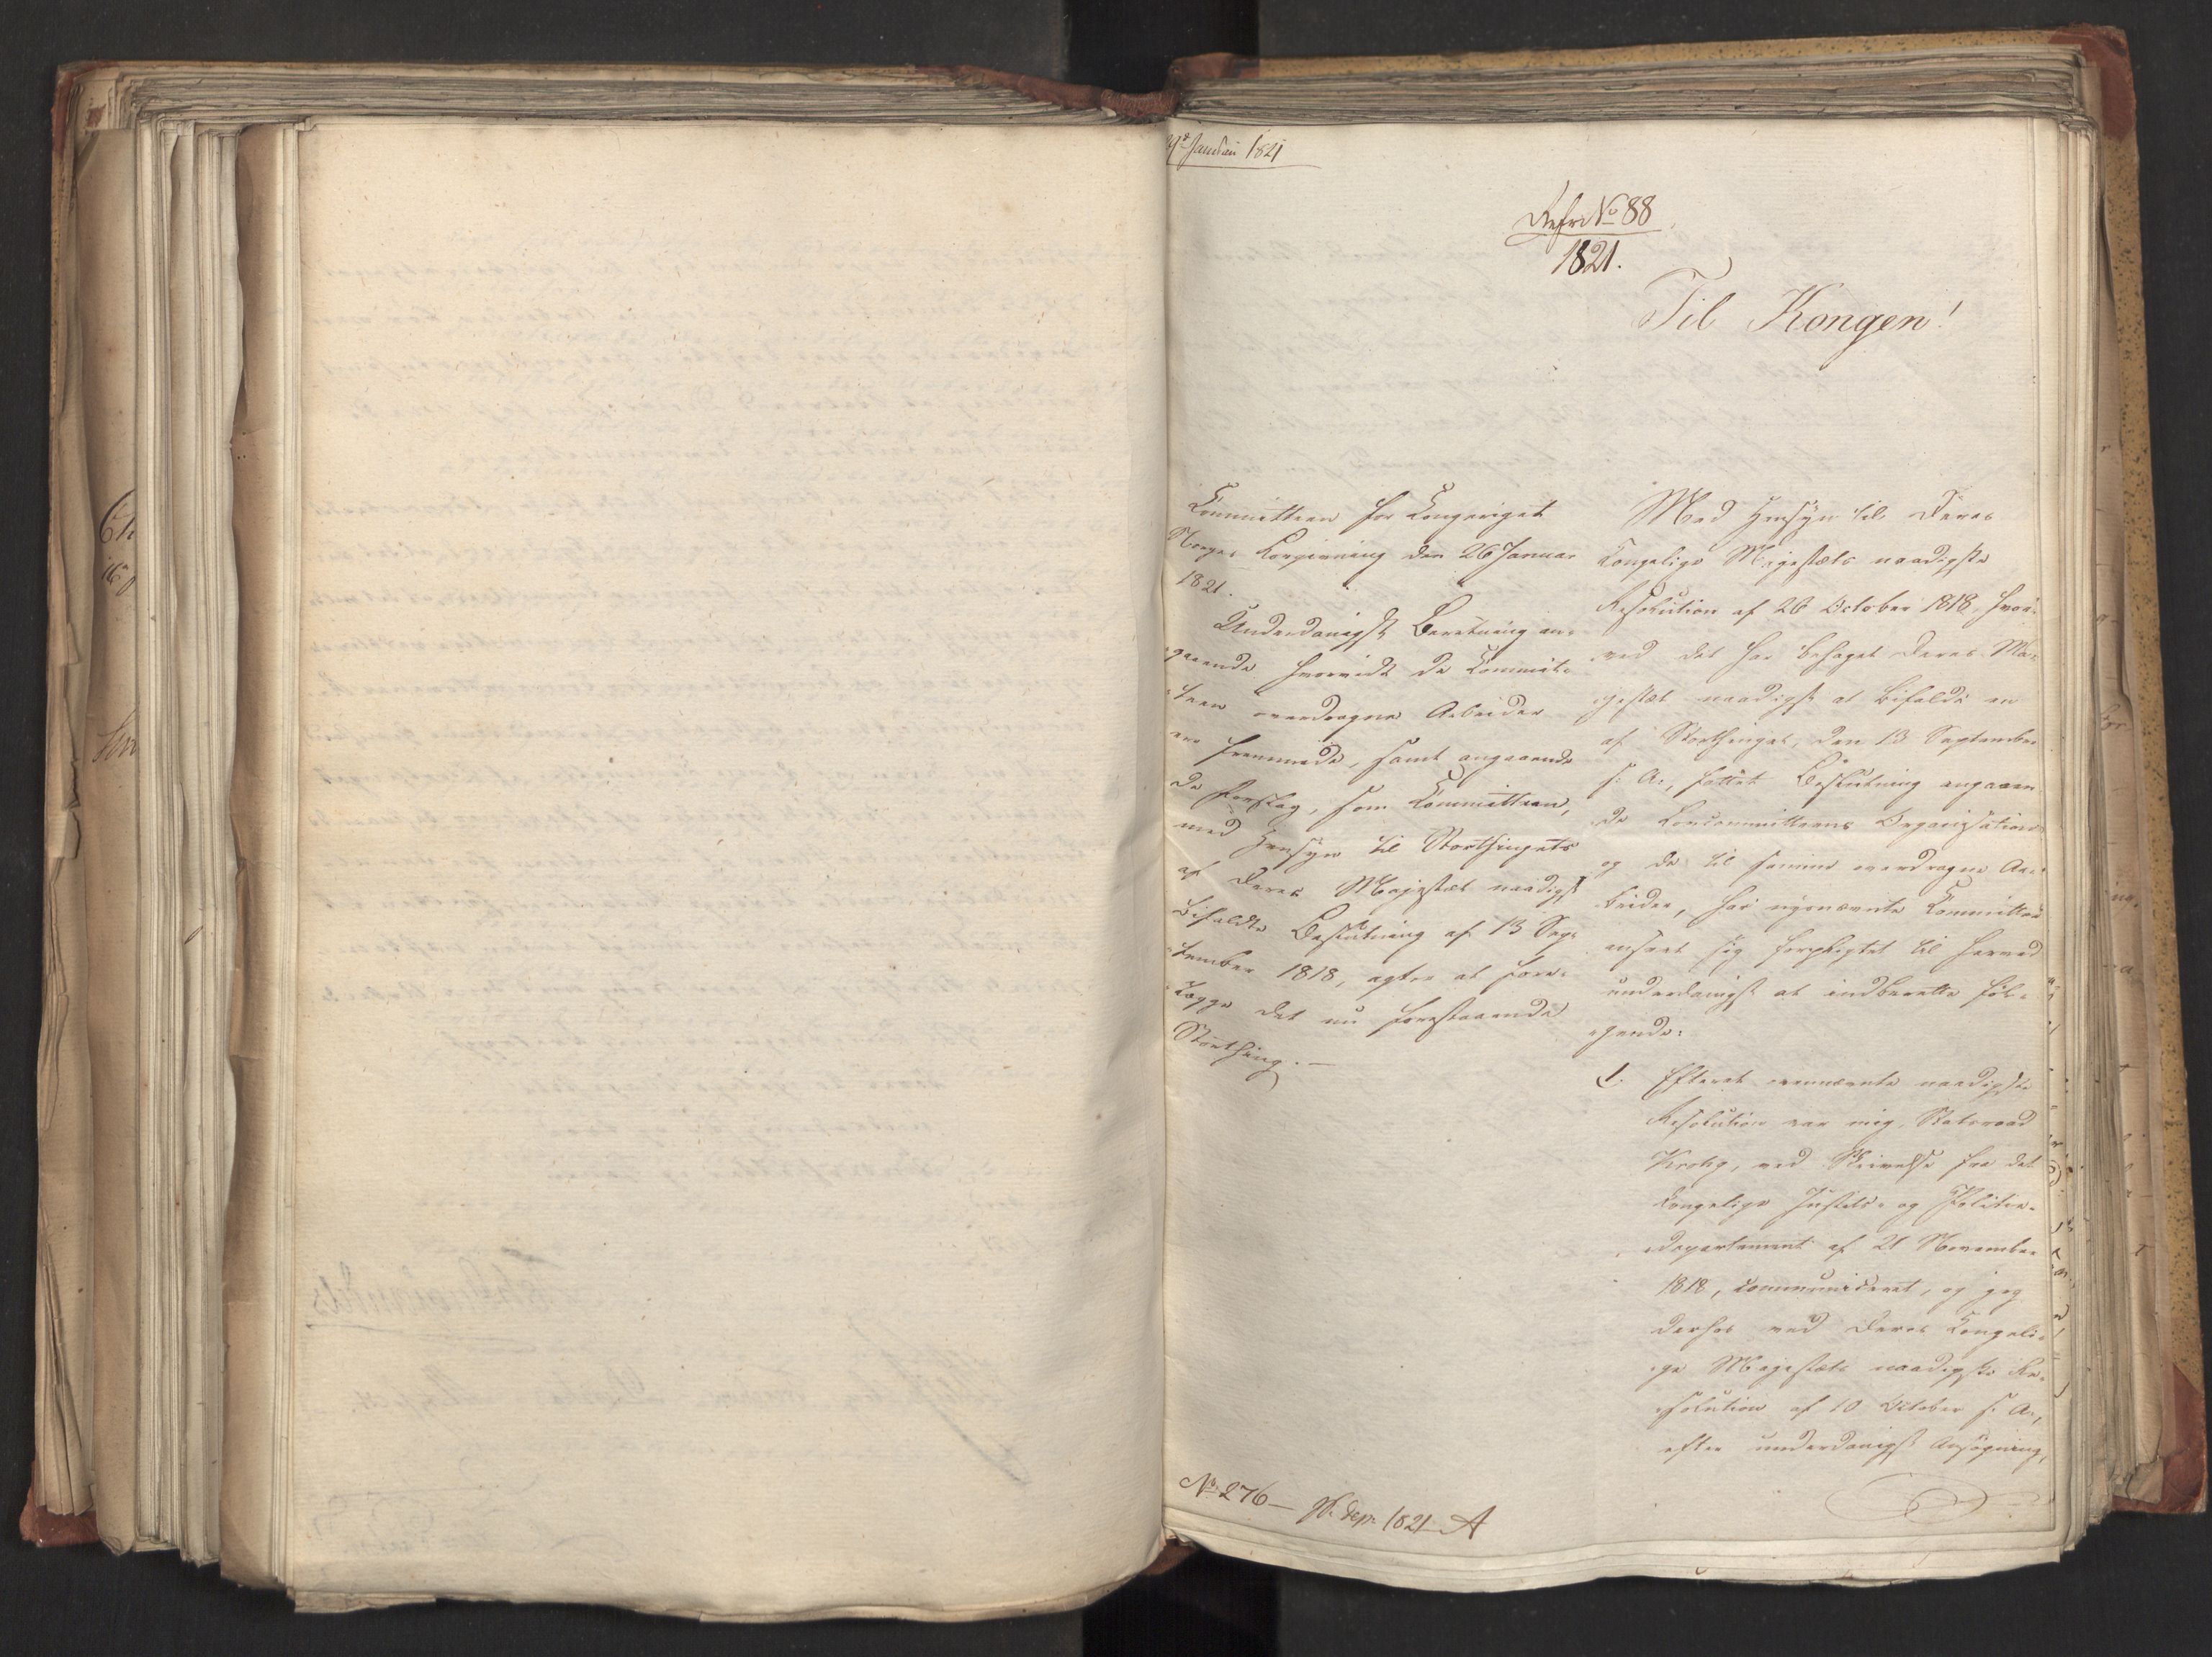 Januari 1821
Refr. No 88
1821.
Til Kongen!
Committeen for Kongeriget
Norges Lovgivning den 26 Januar
1821.
Underdanigst Beretning an-
gaaende hvorvidt de Commit-
teen overdragne Arbeider
ere fremmede, samt angaaende
de Forslag, som Committeen,
med Hensyn til Storthingets
af Deres Majestæt naadigst
bifaldte Beslutning af 13 Sep-
tember 1818, agter at fore-
lægge det nu forestaaende
Storthing. —
Med Hensyn til Deres
Kongelige Majestæts naadigste
Resolution af 26 October 1818, hvor-
ved det har behaget Deres Ma-
jestæt naadigst at bifalde en
af Storthinget, den 13 September
s. A., fattet Beslutning angaaen
de Lovcommitteens Organisation
og de til samme overdragne Ar-
beider, har nysnævnte Committee
anseet sig forpligtet til herved
underdanigst at indberette føl-
gende:
1. Efterat ovennævnte naadigste
Resolution var mig, Statsraad
Krohg, ved Skrivelse fra det
Kongelige Justits- og Politie-
departement af 21 November
1818, communiceret, og jeg
derhos ved Deres Kongeli-
ge Majestæts naadigste Re-
solution af 10 October s. A.,
efter underdanigst Ansøgning,
No 276— Dep. 1821 A